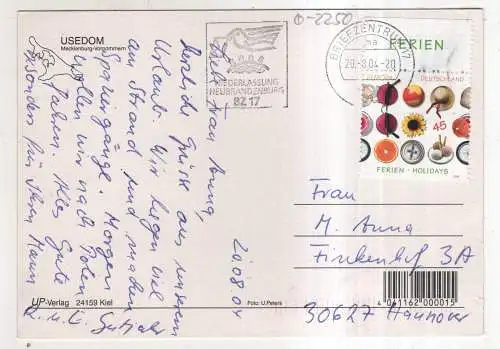 USEDOM
Mecklenburg-Vorpommern
Liebe Frau Anna,
herzliche Grüße aus unserem
Urlaub. Wir liegen viel
am Strand und machen
Spaziergänge. Morgen
wollen wir nach Polen
fahren. Alles Gute
besonders für Ihren Mann
R. u. E.
20.08.04
UP-Verlag 24159 Kiel
Foto: U.Peters
0-2250
NIEDERLASSUNG
NEUBRANDENBURG
BZ 17
BRIEFZENTRUM 17
ma
20.-8.04-20
FERIEN
EUROPA
DEUTSCHLAND
45
FERIEN · HOLIDAYS
Frau
M. Anna
Finkenhof 3A
30627 Hannover
4 041162 000015